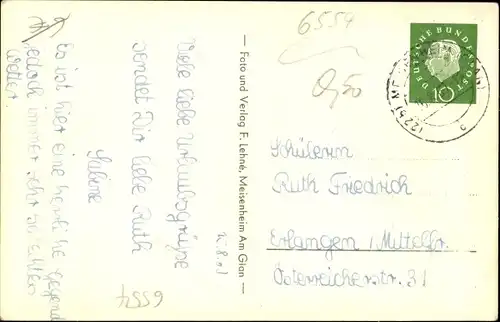 6554
0,50
DEUTSCHE BUNDESPOST
10
Viele liebe Urlaubsgrüsse
sendet Dir liebe Ruth
Sabine
Es ist hier eine herrliche Gegend
jedoch immer sehr schlechtes
Wetter.
6554
— Foto und Verlag F. Lehné, Meisenheim Am Glan —
Schülerin
Ruth Friedrich
Erlangen / Mittelfr.
Österreicherstr. 31